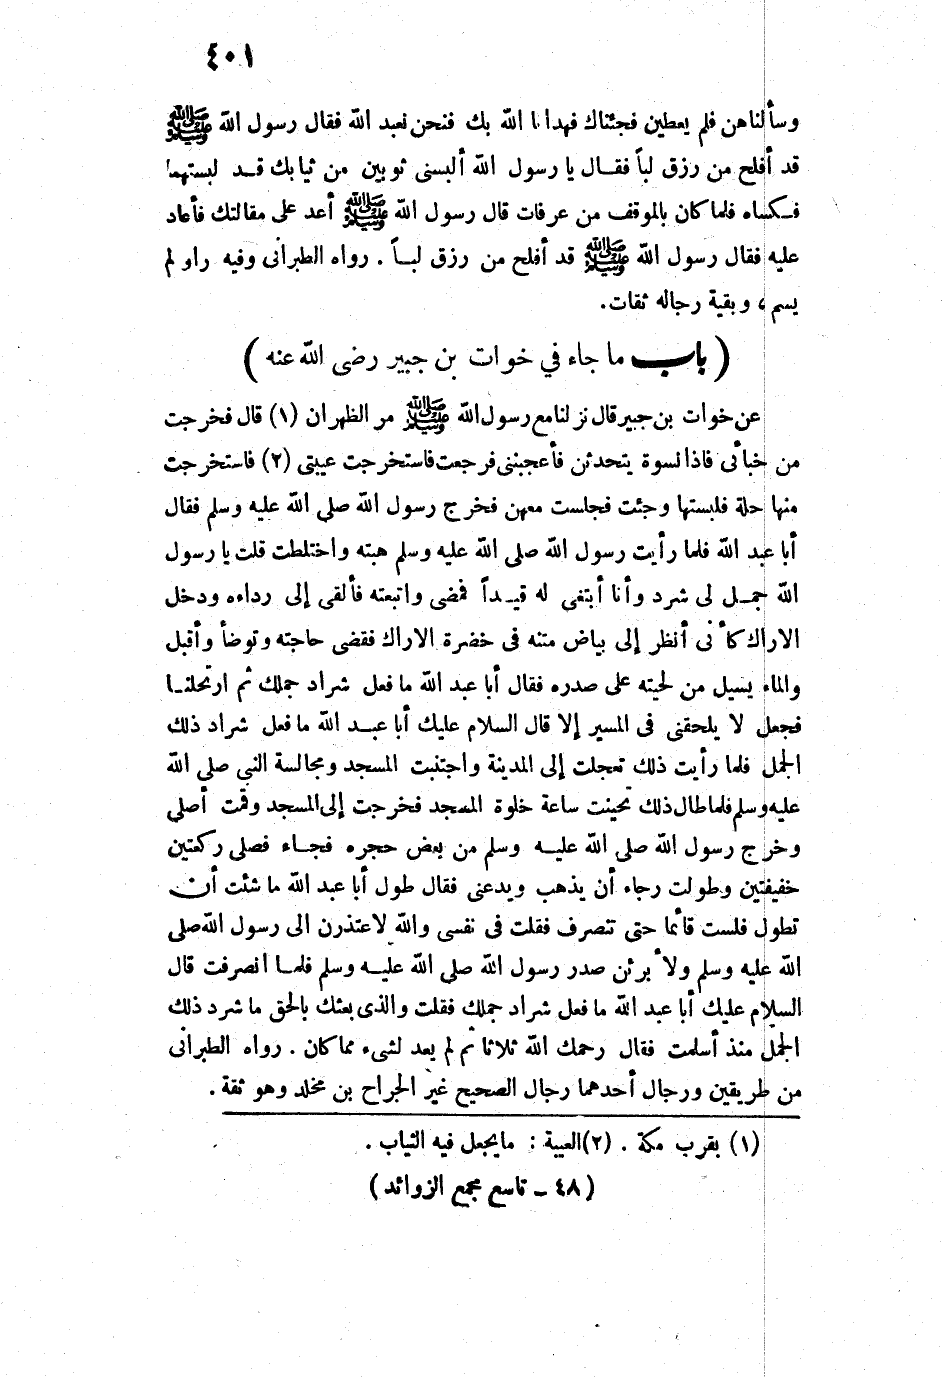 ٤٠١
وسألناهن فلم يعطين فجئناك فهدانا الله بك فنحن نعبد الله فقال رسول الله ﷺ
قد أفلح من رزق لباً فقال يا رسول الله ألبسنى ثوبين من ثيابك قد لبستهما
فكساه فلما كان بالموقف من عرفات قال رسول الله ﷺ أعد على مقالتك فأعاد
عليه فقال رسول الله ﷺ قد أفلح من رزق لباً . رواه الطبرانى وفيه راو لم
يسم ، وبقية رجاله ثقات.
( باب ما جاء في خوات بن جبير رضى الله عنه )
عن خوات بن جبير قال نزلنا مع رسول الله ﷺ مر الظهران (١) قال فخرجت
من خبائى فاذا نسوة يتحدثن فأعجبننى فرجعت فاستخرجت عيبتى (٢) فاستخرجت
منها حلة فلبستها وجئت فجلست معهن فخرج رسول الله صلى الله عليه وسلم فقال
أبا عبد الله فلما رأيت رسول الله صلى الله عليه وسلم هبته واختلطت قلت يا رسول
الله جمل لى شرد وأنا أبتغى له قيداً فمضى واتبعته فألقى إلى رداءه ودخل
الاراك كأنى أنظر إلى بياض متنه فى خضرة الاراك فقضى حاجته وتوضأ وأقبل
والماء يسيل من لحيته على صدره فقال أبا عبد الله ما فعل شراد جملك ثم ارتحلنا
فجعل لا يلحقنى فى المسير إلا قال السلام عليك أبا عبد الله ما فعل شراد ذلك
الجمل فلما رأيت ذلك تعجلت إلى المدينة واجتنبت المسجد ومجالسة النبي صلى الله
عليه وسلم فلما طال ذلك تحينت ساعة خلوة المسجد فخرجت إلى المسجد وقمت أصلي
وخرج رسول الله صلى الله عليه وسلم من بعض حجره فجاء فصلى ركعتين
خفيفتين وطولت رجاء أن يذهب ويدعنى فقال طول أبا عبد الله ما شئت أن
تطول فلست قائما حتى تنصرف فقلت فى نفسى والله لاعتذرن الى رسول الله صلى
الله عليه وسلم ولأبرئن صدر رسول الله صلى الله عليه وسلم فلما انصرفت قال
السلام عليك أبا عبد الله ما فعل شراد جملك فقلت والذى بعثك بالحق ما شرد ذلك
الجمل منذ أسلمت فقال رحمك الله ثلاثا ثم لم يعد لشىء مما كان . رواه الطبرانى
من طريقين ورجال أحدهما رجال الصحيح غير الجراح بن مخلد وهو ثقة .
(١) بقرب مكة . (٢) العيبة : ما يجعل فيه الثياب .
( ٤٨ ــ تاسع مجمع الزوائد )